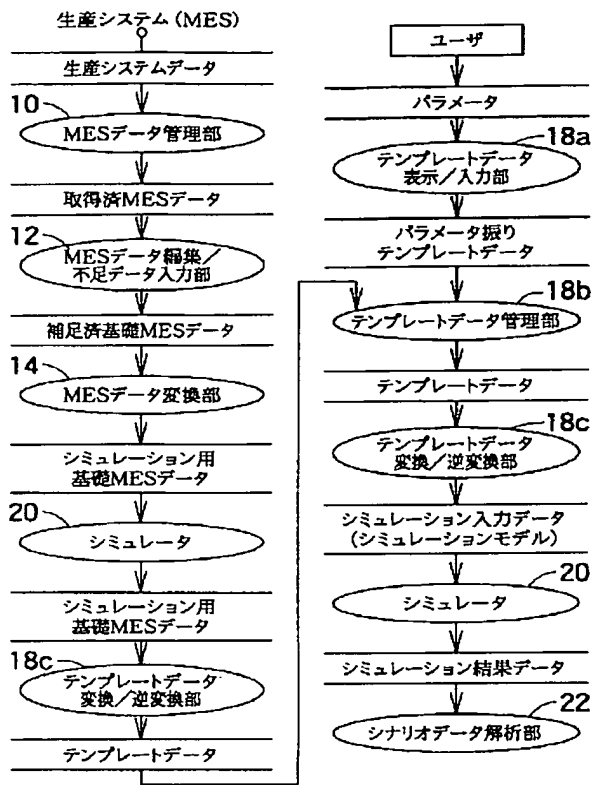 生産システム(MES)
生産システムデータ
10
MESデータ管理部
取得済MESデータ
12
MESデータ編集/
不足データ入力部
補足済基礎MESデータ
14
MESデータ変換部
シミュレーション用
基礎MESデータ
20
シミュレータ
シミュレーション用
基礎MESデータ
18c
テンプレートデータ
変換/逆変換部
テンプレートデータ
ユーザ
パラメータ
18a
テンプレートデータ
表示/入力部
パラメータ振り
テンプレートデータ
18b
テンプレートデータ管理部
テンプレートデータ
18c
テンプレートデータ
変換/逆変換部
シミュレーション入力データ
(シミュレーションモデル)
20
シミュレータ
シミュレーション結果データ
22
シナリオデータ解析部